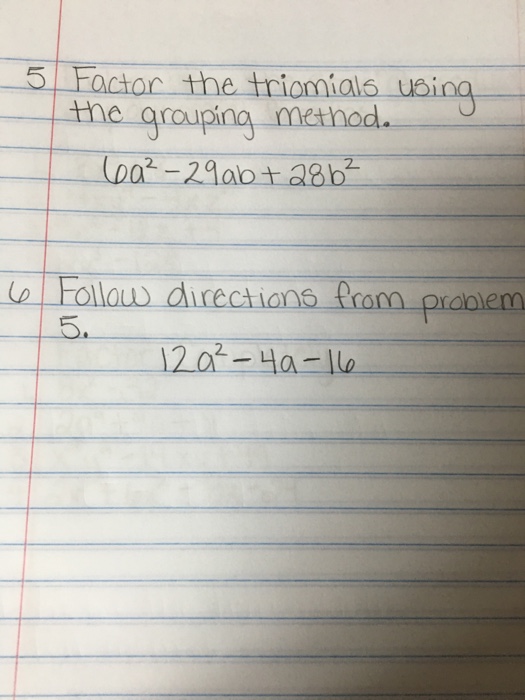 5 Factor the triomials using
the grouping method.
6a² - 29ab + 28b²
6 Follow directions from problem
5.
12a² - 4a - 16